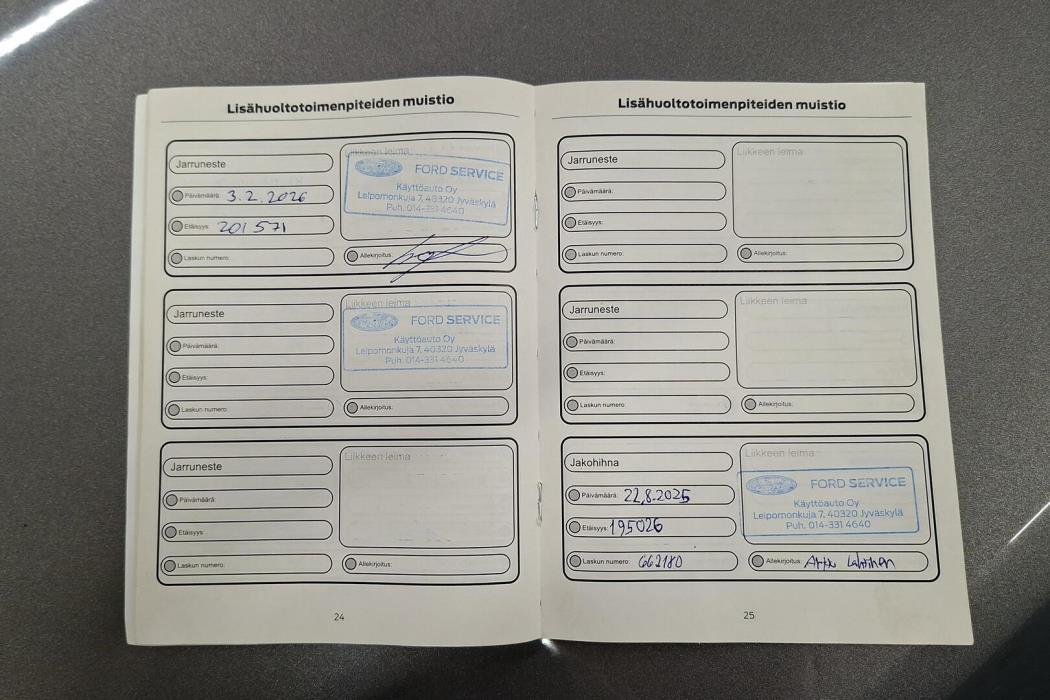 Lisähuoltotoimenpiteiden muistio
Jarruneste
Liikkeen leima
Päivämäärä: 3.2.2026
Etäisyys: 201 571
Laskun numero:
FORD SERVICE
Käyttöauto Oy
Leipomonkuja 7, 40320 Jyväskylä
Puh. 014-331 4640
Allekirjoitus:
Jarruneste
Liikkeen leima
Päivämäärä:
Etäisyys:
Laskun numero:
FORD SERVICE
Käyttöauto Oy
Leipomonkuja 7, 40320 Jyväskylä
Puh. 014-331 4640
Allekirjoitus:
Jarruneste
Liikkeen leima
Päivämäärä:
Etäisyys:
Laskun numero:
Allekirjoitus:
24
Lisähuoltotoimenpiteiden muistio
Jarruneste
Liikkeen leima
Päivämäärä:
Etäisyys:
Laskun numero:
Allekirjoitus:
Jarruneste
Liikkeen leima
Päivämäärä:
Etäisyys:
Laskun numero:
Allekirjoitus:
Jakohihna
Liikkeen leima
Päivämäärä: 22.8.2025
Etäisyys: 195026
Laskun numero: 662180
FORD SERVICE
Käyttöauto Oy
Leipomonkuja 7, 40320 Jyväskylä
Puh. 014-331 4640
Allekirjoitus: Lahtinen
25